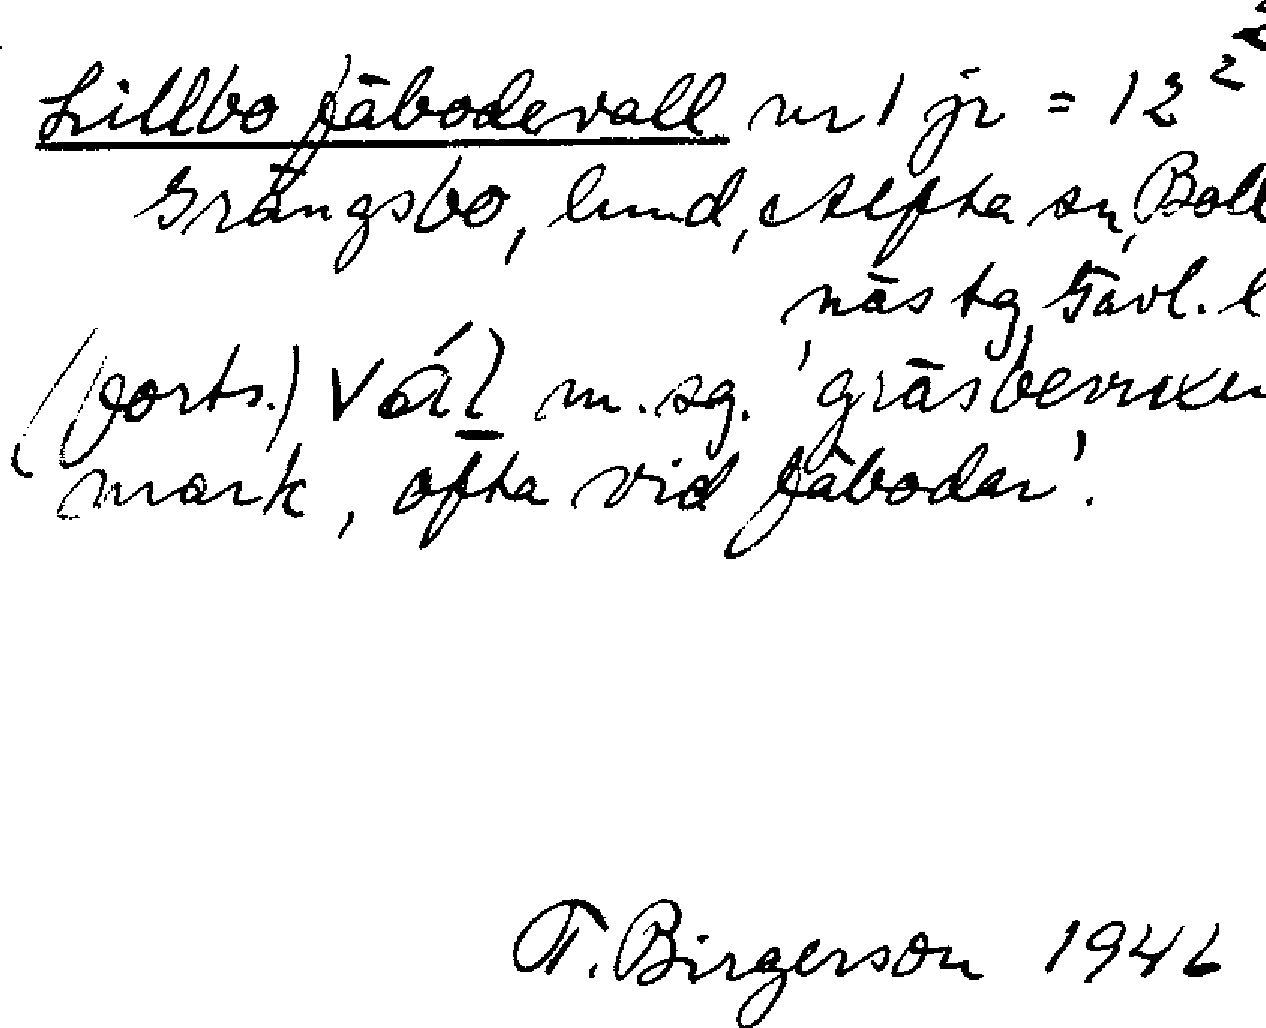 Lillbo fäbodevall nr 1 jr = 12²
Grängsbo, lund, Alfta sn, Boll
näs tg, Gävl. l
(forts.) Vál m. sg. 'gräsbevuxen
mark, ofta vid fäbodar'.
T. Birgerson 1946